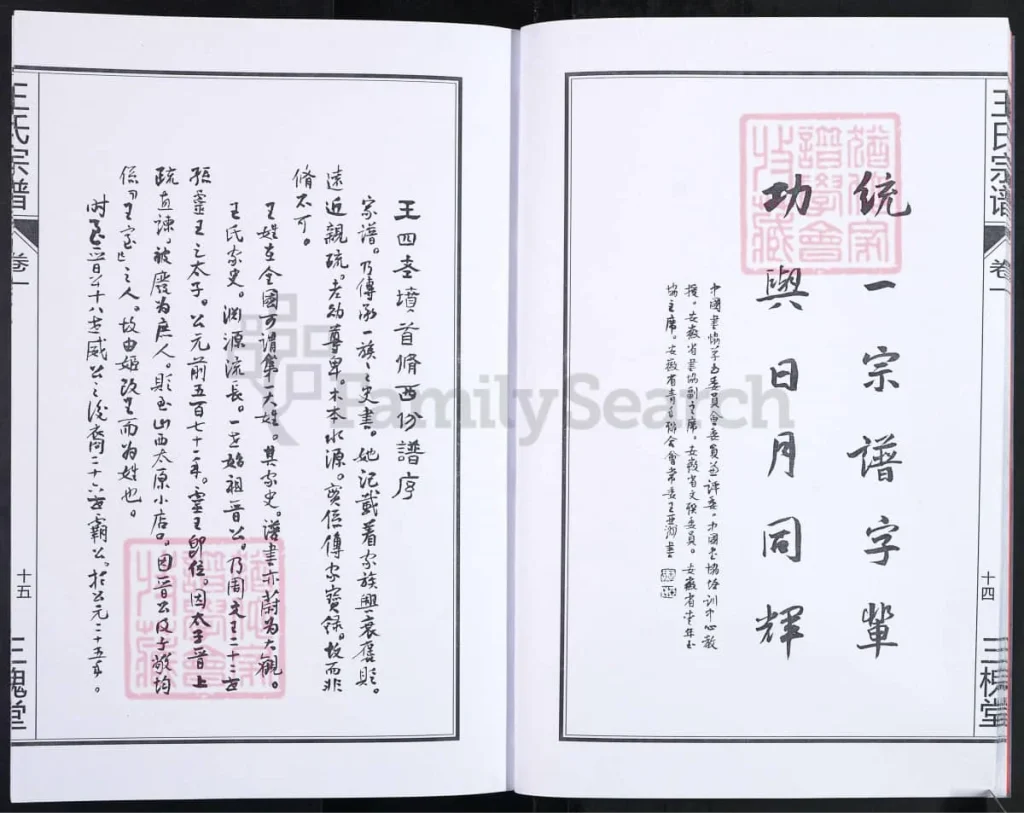 王氏宗谱
卷一
十四
三槐堂
统一宗谱字辈
功與日月同辉
中國書協草書委員會委員兼評委。中國書協培训中心教
授。安徽省書協副主席。安徽省文联委員。安徽省青年书
協主席。安徽省青年聯合會常委王亚洲書
王四老墳首脩西份譜序
家譜。乃傳承一族之史書。她记載着家族興衰褒貶。
遠近親疏。老幼尊卑。木本水源。實係傳家寶録。故而非
脩不可。
王姓在全國可谓第一大姓。其家史。譜書亦蔚为大觀。
王氏家史。渊源流長。一世始祖晋公。乃周文王二十二世
孫靈王之太子。公元前五百七十二年。靈王即位。因太子晋上
疏直諫，被廢为庶人。貶至山西太原小店。因晋公及子敬均
係“王室”之人。故由姬改王而为姓也。
时至晋公十八世威公之後裔二十六世霸公。於公元二十五年。
王氏宗谱
卷一
十五
三槐堂
FamilySearch
譜學會
收藏